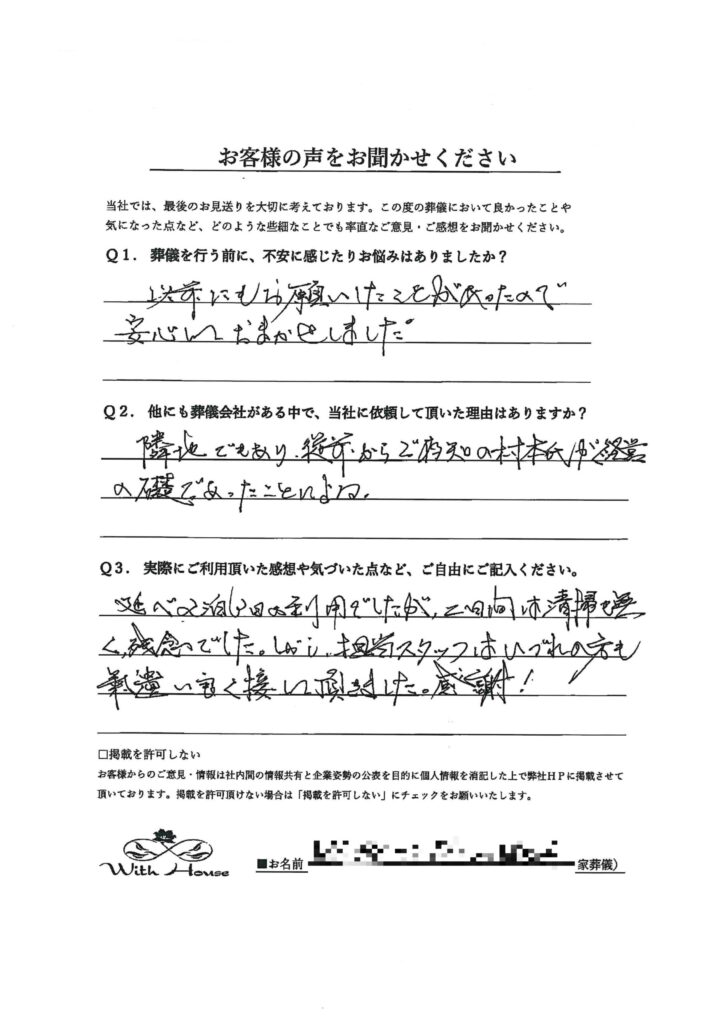 お客様の声をお聞かせください
当社では、最後のお見送りを大切に考えております。この度の葬儀において良かったことや
気になった点など、どのような些細なことでも率直なご意見・ご感想をお聞かせください。
Q1. 葬儀を行う前に、不安に感じたりお悩みはありましたか?
以前にもお願いしたことが有ったので
安心しておまかせしました。
Q2. 他にも葬儀会社がある中で、当社に依頼して頂いた理由はありますか?
隣地でもあり、従前からご存知の村本氏が経営
の礎であったことによる。
Q3. 実際にご利用頂いた感想や気づいた点など、ご自由にご記入ください。
延べ2泊3日の利用でしたが、二日間は清掃も無
く、残念でした。しかし、担当スタッフはいづれの方も
氣遣い良く接して頂きました。感謝!
□掲載を許可しない
お客様からのご意見・情報は社内間の情報共有と企業姿勢の公表を目的に個人情報を消記した上で弊社HPに掲載させて
頂いております。掲載を許可頂けない場合は「掲載を許可しない」にチェックをお願いいたします。
With House
■お名前 家葬儀)